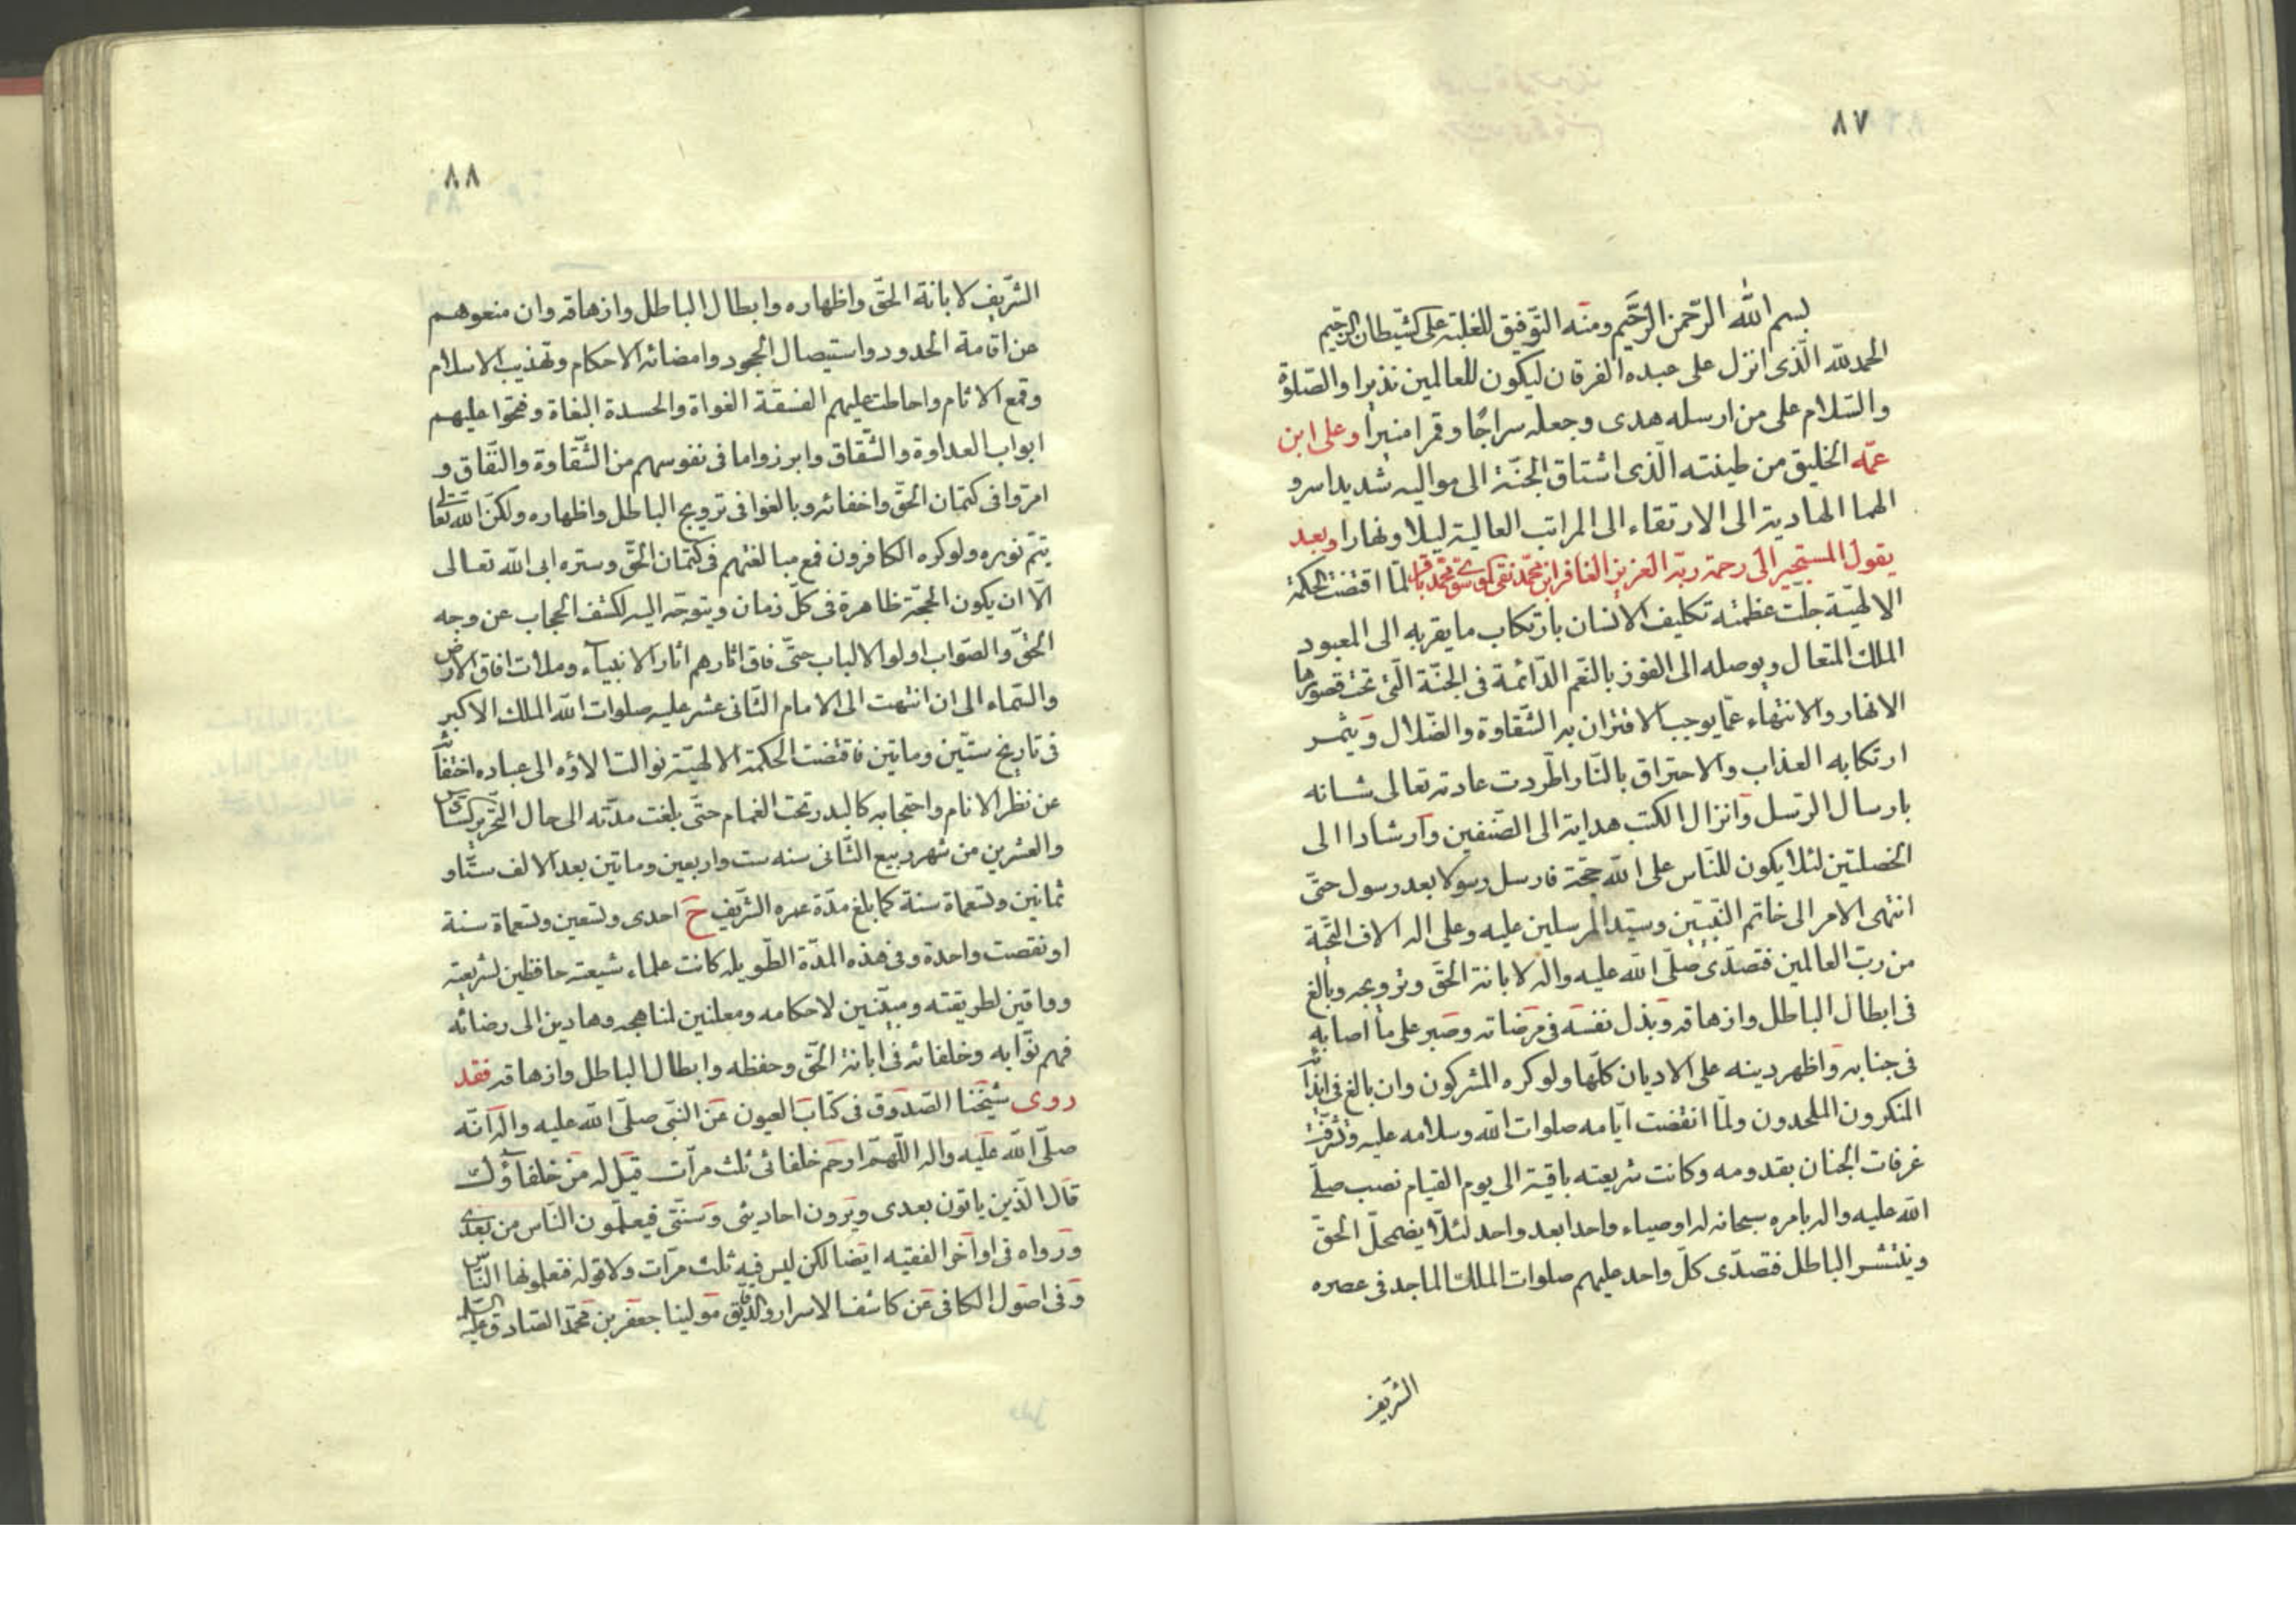 ٨٧
بسم الله الرّحمن الرّحيم ومنه التّوفيق للغلبة على كشّيطان الرّجيم
الحمد لله الّذى انزل على عبده الفرقان ليكون للعالمين نذيرا والصّلوة
والسّلام على من ارسله هدى وجعله سراجًا وقمرا منيرا وعلى ابن
عمّه الخليق من طينته الّذى اشتاق الجنّة الى مواليه شديدا سرو
الهما الهادية الى الارتقاء الى المراتب العالية ليلا ونهارا وبعد
يقول المستجير الى رحمة ربّه العزيز الغافر ابن محمّد نقى محمّد باقر لمّا اقتضت الحكمة
الالهيّة جلّت عظمته تكليف الانسان بارتكاب ما يقربه الى المعبود
الملك المتعال ويوصله الى الفوز بالنّعم الدّائمة فى الجنّة الّتى تحت قصورها
الانهار والانتهاء عمّا يوجب الاقتران به الشّقاوة والضّلال ويثمر
ارتكابه العذاب والاحتراق بالنّار اطّردت عادته تعالى شانه
بارسال الرّسل وانزال الكتب هداية الى الصّنفين وارشادا الى
الخصلتين لئلا يكون للنّاس على الله حجّة فارسل رسولا بعد رسول حتّى
انتهى الامر الى خاتم النّبيّين وسيّد المرسلين عليه وعلى اله الاف التّحيّة
من ربّ العالمين فتصدّى صلّى الله عليه واله لابانة الحقّ وترويجه وبالغ
فى ابطال الباطل وازهاقه وبذل نفسه فى مرضاته وصبر على ما اصابه
فى جنابه واظهر دينه على الاديان كلّها ولو كره المشركون وان بالغ فى ايذائه
المنكرون الملحدون ولمّا انقضت ايّامه صلوات الله وسلامه عليه وتشرّفت
غرفات الجنان بقدومه وكانت شريعته باقية الى يوم القيام نصب صلّى
الله عليه واله بامره سبحانه له اوصياء واحدا بعد واحد لئلّا يضمحلّ الحقّ
وينتشر الباطل فتصدّى كلّ واحد عليهم صلوات الملك الماجد فى عصره
الشّريف
٨٨
الشّريف لابانة الحقّ واظهاره وابطال الباطل وازهاقه وان منعوهم
عن اقامة الحدود واستيصال الجحود وامضائه الاحكام وتهذيب الاسلام
وقمع الاثام واحاطت عليهم الفسقة الغواة والحسدة البغاة وفتحوا عليهم
ابواب العداوة والشّقاق وابرزوا ما فى نفوسهم من الشّقاوة والنّفاق و
امروا فى كتمان الحقّ واخفائه وبالغوا فى ترويج الباطل واظهاره ولكنّ الله تعالى
يتمّ نوره ولو كره الكافرون فمع مبالغتهم فى كتمان الحقّ وستره ابى الله تعالى
الّا ان يكون الحجّة ظاهرة فى كلّ زمان ويتوجّه اليه لكشف الحجاب عن وجه
الحقّ والصّواب اولو الالباب حتّى فاق اثارهم اثار الانبياء وملات افاق الارض
والسّماء الى ان انتهت الى الامام الثّانى عشر عليه صلوات الله الملك الاكبر
فى تاريخ ستّين وماتين فاقتضت الحكمة الالهيّة توالت الاؤه الى عباده اختفائه
عن نظر الانام واحتجابه كالبدر تحت الغمام حتّى بلغت مدّته الى حال التّحرير كسّادس
والعشرين من شهر ربيع الثّانى سنه ست واربعين وماتين بعد الالف ستّا و
ثمانين وتسعماة سنة كما بلغ مدّة عمره الشّريف ح احدى وتسعين وتسعماة سنة
او نقصت واحدة وفى هذه المدّة الطّويله كانت علماء شيعته حافظين لشريعته
وواقين لطريقته ومبيّنين لاحكامه ومعلنين لمناهجه وهادين الى رضائه
فهم نوّابه وخلفائه فى ابانة الحقّ وحفظه وابطال الباطل وازهاقه فقد
روى شيخنا الصّدوق فى كتاب العيون عن النّبى صلّى الله عليه واله انّه
صلّى الله عليه واله اللّهمّ ارحم خلفائى ثلث مرّات قيل له من خلفاؤك
قال الّذين ياتون بعدى ويروون احاديثى وسنّتى فيعلّمون النّاس من بعدى
ورواه فى اواخر الفقيه ايضا لكن ليس فيه ثلث مرّات ولا قوله فتعلمونها النّاس
وفى اصول الكافى عن كاشف الاسرار والدّقايق مولينا جعفر بن محمّد الصّادق عليه السّلام